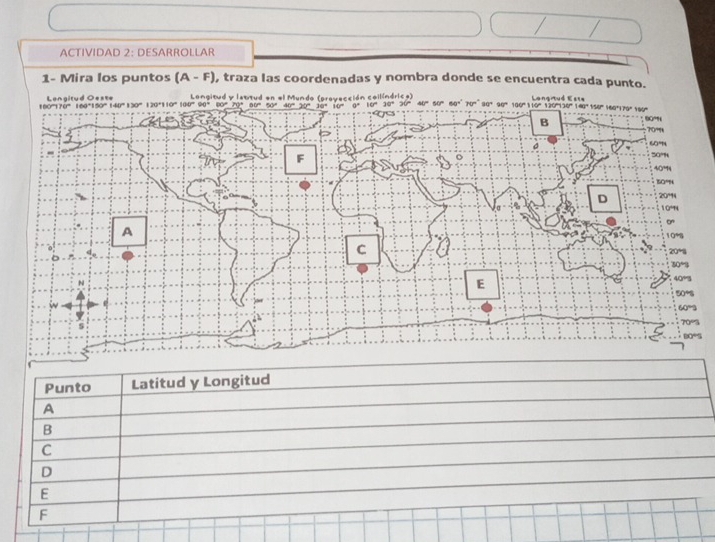 ACTIVIDAD 2: DESARROLLAR
1- Mira los puntos (A - F), traza las coordenadas y nombra donde se encuentra cada punto.
Longitud Oeste Longitud y latitud en el Mundo (proyección cilíndrica) Longitud Este
180° 170° 160° 150° 140° 130° 120° 110° 100° 90° 80° 70° 60° 50° 40° 30° 20° 10° 0° 10° 20° 30° 40° 50° 60° 70° 80° 90° 100° 110° 120° 130° 140° 150° 160° 170° 180°
80°N
B
70°N
60°N
50°N
F
40°N
30°N
20°N
D
10°N
0°
A
10°S
C
20°S
30°S
N
E
40°S
50°S
W
60°S
S
70°S
80°S
Punto Latitud y Longitud
A
B
C
D
E
F